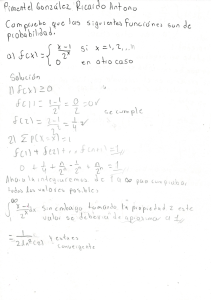 Pimentel González Ricardo Antonio
Compruebe que las siguientes funciones son de
probabilidad.
a) f(x) = { x-1 / 2^x si x = 1, 2, ...
0 en otro caso
Solución
1) f(x) ≥ 0
f(1) = 1-1 / 2 = 0/2 = 0 ✓
se cumple
f(2) = 2-1 / 2² = 1/4 ✓
2) Σ P(X=x) = 1
f(1) + f(2) + ... = 1
0 + 1/4 +
Ahora lo integraremos de 1 a ∞ para comprobar
todos los valores posibles
∫ x-1 / 2^x dx sin embargo tomando la propiedad 2 este
valor se debería de aproximar a 1
convergente